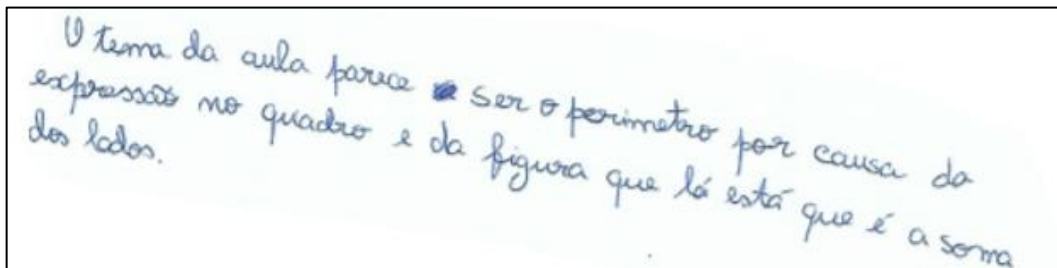 O tema da aula parece ser o perimetro por causa da
expressão no quadro e da figura que lá está que é a soma
dos lados.